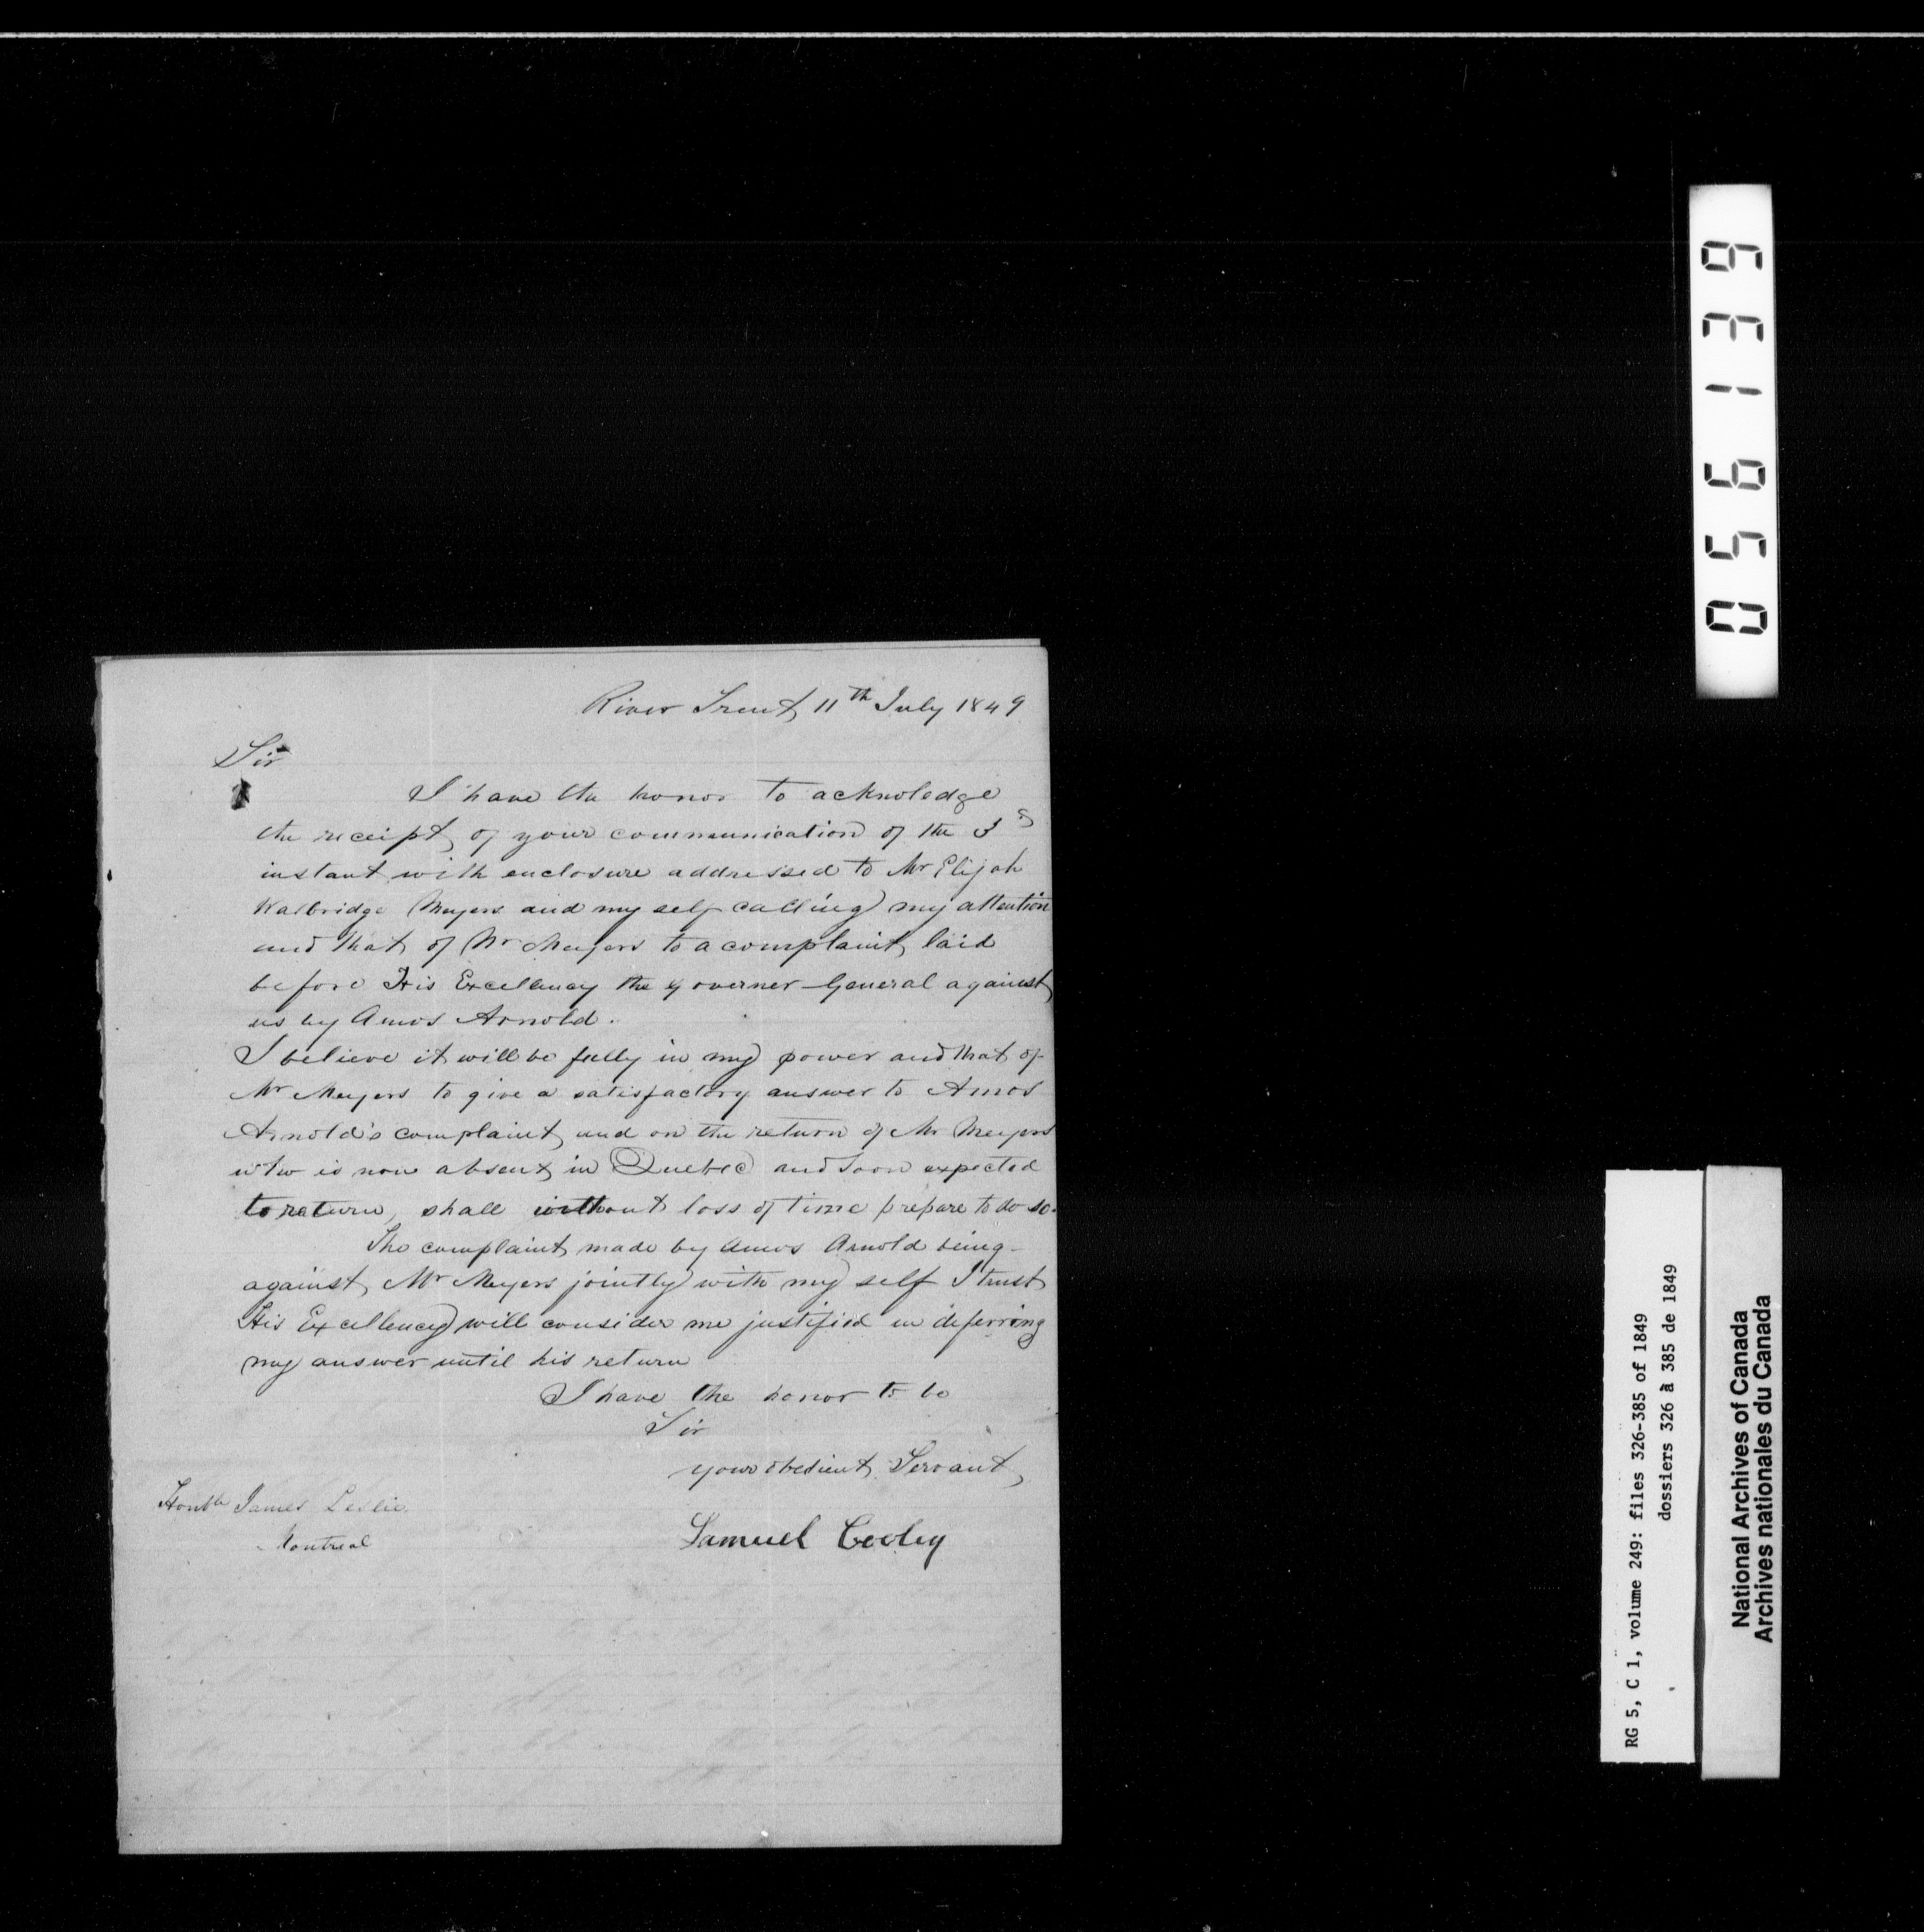 River Trent 11th July 1849
Sir
I have the honor to acknoledge
the receipt of your communication of the 3d
instant with enclosure addressed to Mr Elijah
Walbridge Meyers and my self calling my attention
and that of Mr Meyers to a complaint laid
before His Excellency the governer General against
us by Amos Arnold.
I believe it will be fully in my power and that of
Mr Meyers to give a satisfactory answer to Amos
Arnold's complaint and on the return of Mr Meyers
who is now absent in Quebec and soon expected
to return, shall without loss of time prepare to do so.
The complaint made by Amos Arnold being
against Mr Meyers jointly with my self I trust
His Excellency will consider me justified in deferring
my answer until his return
I have the honor to be
Sir
your obedient Servant
Honble James Leslie
Montreal
Samuel Cooley
056139
RG 5, C 1, volume 249: files 326-385 of 1849
dossiers 326 à 385 de 1849
National Archives of Canada
Archives nationales du Canada